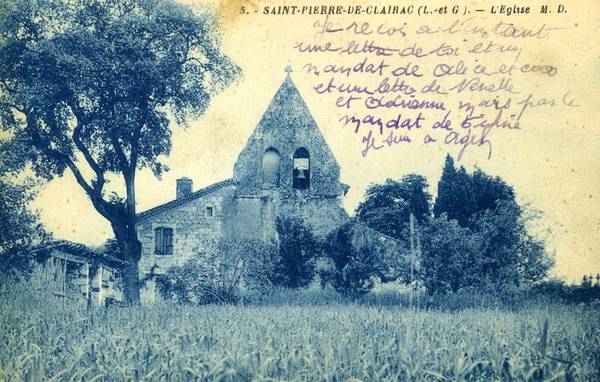 5. - SAINT-PIERRE-DE-CLAIRAC (L.-et G.). - L'Eglise M. D.
Je recois a l'instant
une lettre de toi et un
mandat de Alice et coco
et une lettre de
et Adrienne mais pas le
mandat de
Je suis a Agen